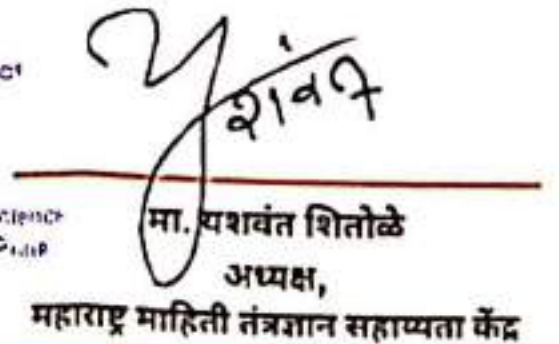 यशवंत
मा. यशवंत शितोळे
अध्यक्ष,
महाराष्ट्र माहिती तंत्रज्ञान सहाय्यता केंद्र